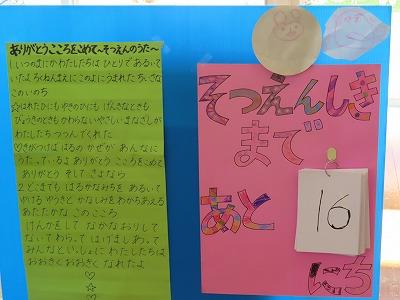 ありがとうこころをこめて～そつえんのうた～
1.いつのまにかわたしたちは ひとりであるいて
いたよ ろくねんまえにこのよにうまれた ちいさな
このいのち
☆はれたひにもやきのひにも げんきなときも
びょうきのときも かわらないやさしいまなざしが
わたしたち つつんでくれた
♡きがつけば はるの かぜが あんなに
うたっているよ ありがとう こころをこめて
ありがとう そして さよなら
2.どこまでも はるかなみちを あるいて
ゆける ゆうきと かなしみをわかちあえる
あたたかな このこころ
けんかをして なかなおりして
ないて わらって はげましあって
みんなといっしょに わたしたちは
おおきく おおきく なれたよ
☆
♡
♡
そつえんしき
まで
あと
16
にち